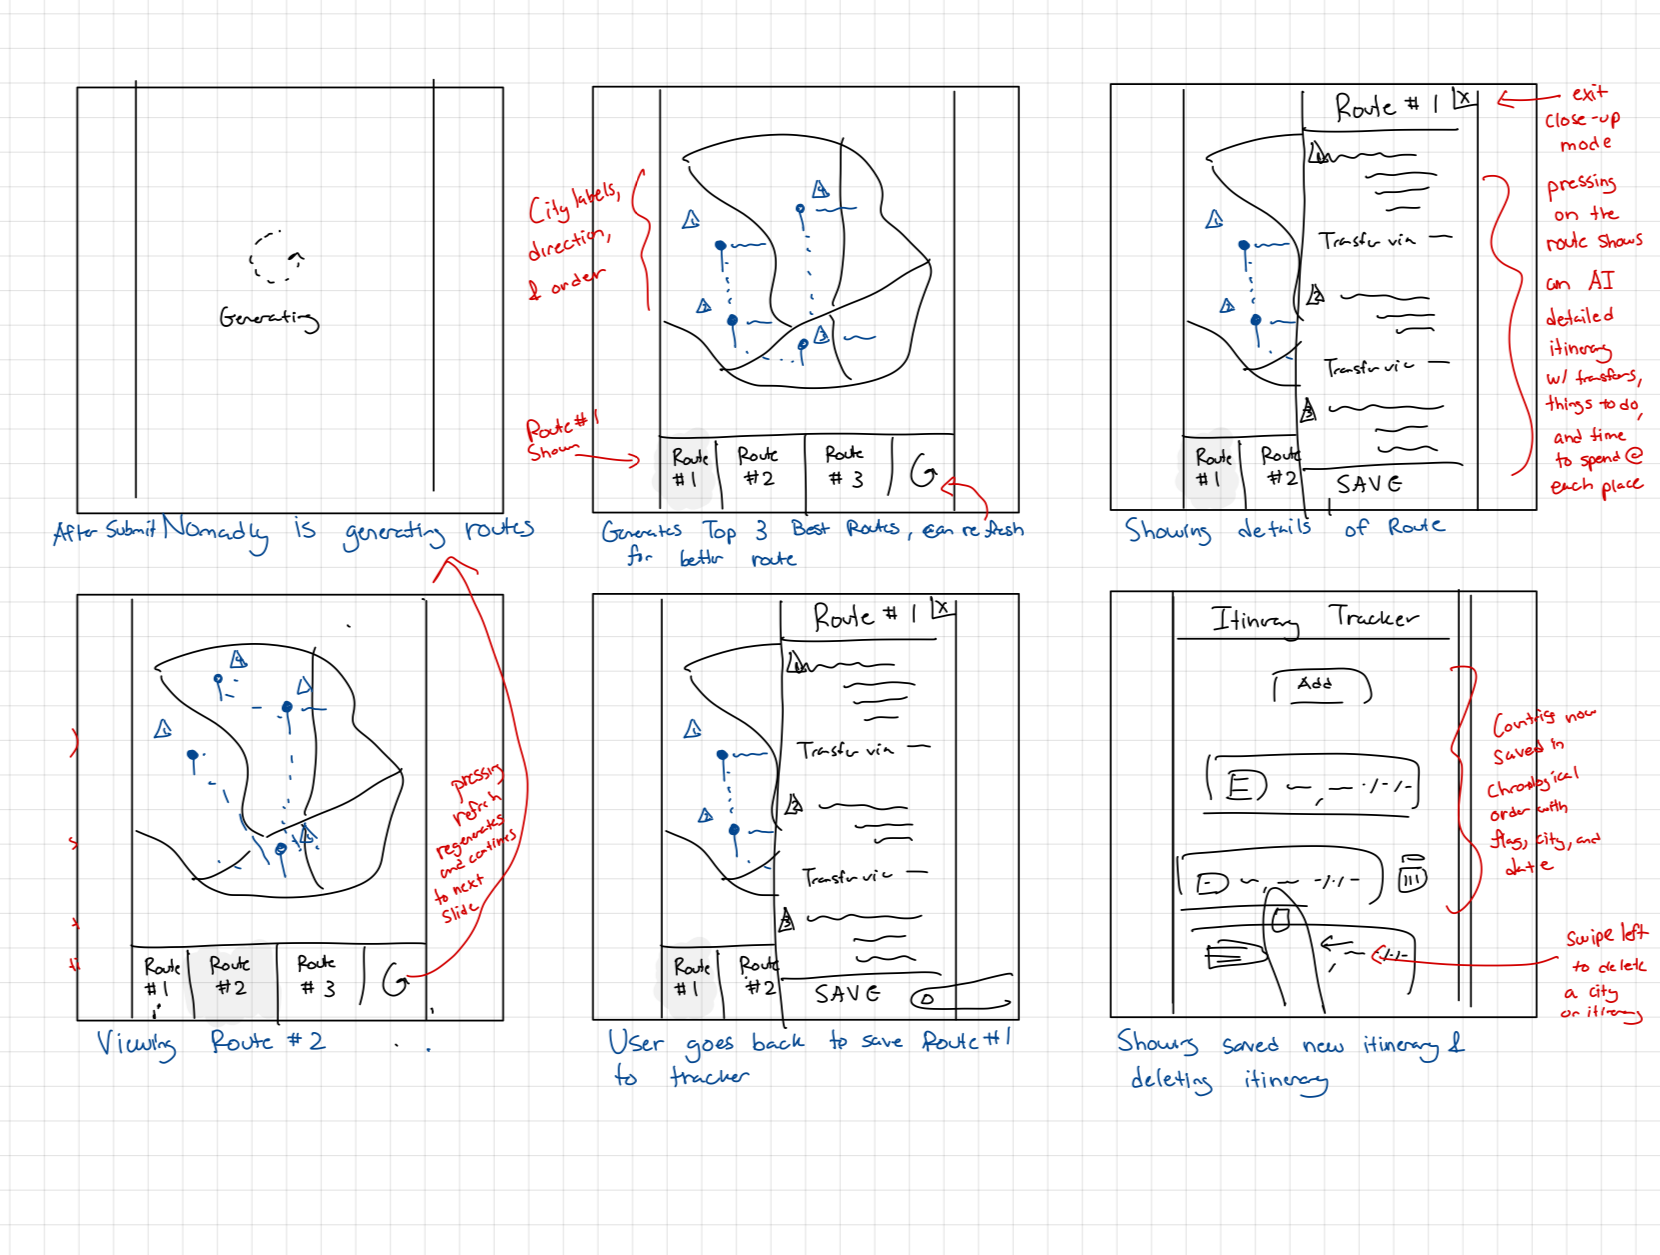 Generating
After Submit Nomadly is generating routes
City labels,
direction,
& order
1
2
3
4
Route #1
Shown
Route
#1
Route
#2
Route
#3
Generates Top 3 Best Routes, can refresh
for better route
Route #1 X
1
2
1
Transfer via
2
Transfer via
3
Route
#1
Route
#2
SAVE
Showing details of Route
exit
close-up
mode
pressing
on the
route shows
an AI
detailed
itinerary
w/ transfers,
things to do,
and time
to spend @
each place
1
4
Route
#1
Route
#2
Route
#3
pressing
refresh
regenerates
and continues
to next
slide
Viewing Route #2
Route #1 X
1
2
1
Transfer via
2
Transfer via
3
Route
#1
Route
#2
SAVE
User goes back to save Route #1
to tracker
Itinerary Tracker
Add
Countries now
saved in
chronological
order with
flag, city, and
date
Swipe left
to delete
a city
or itinerary
Showing saved new itinerary &
deleting itinerary